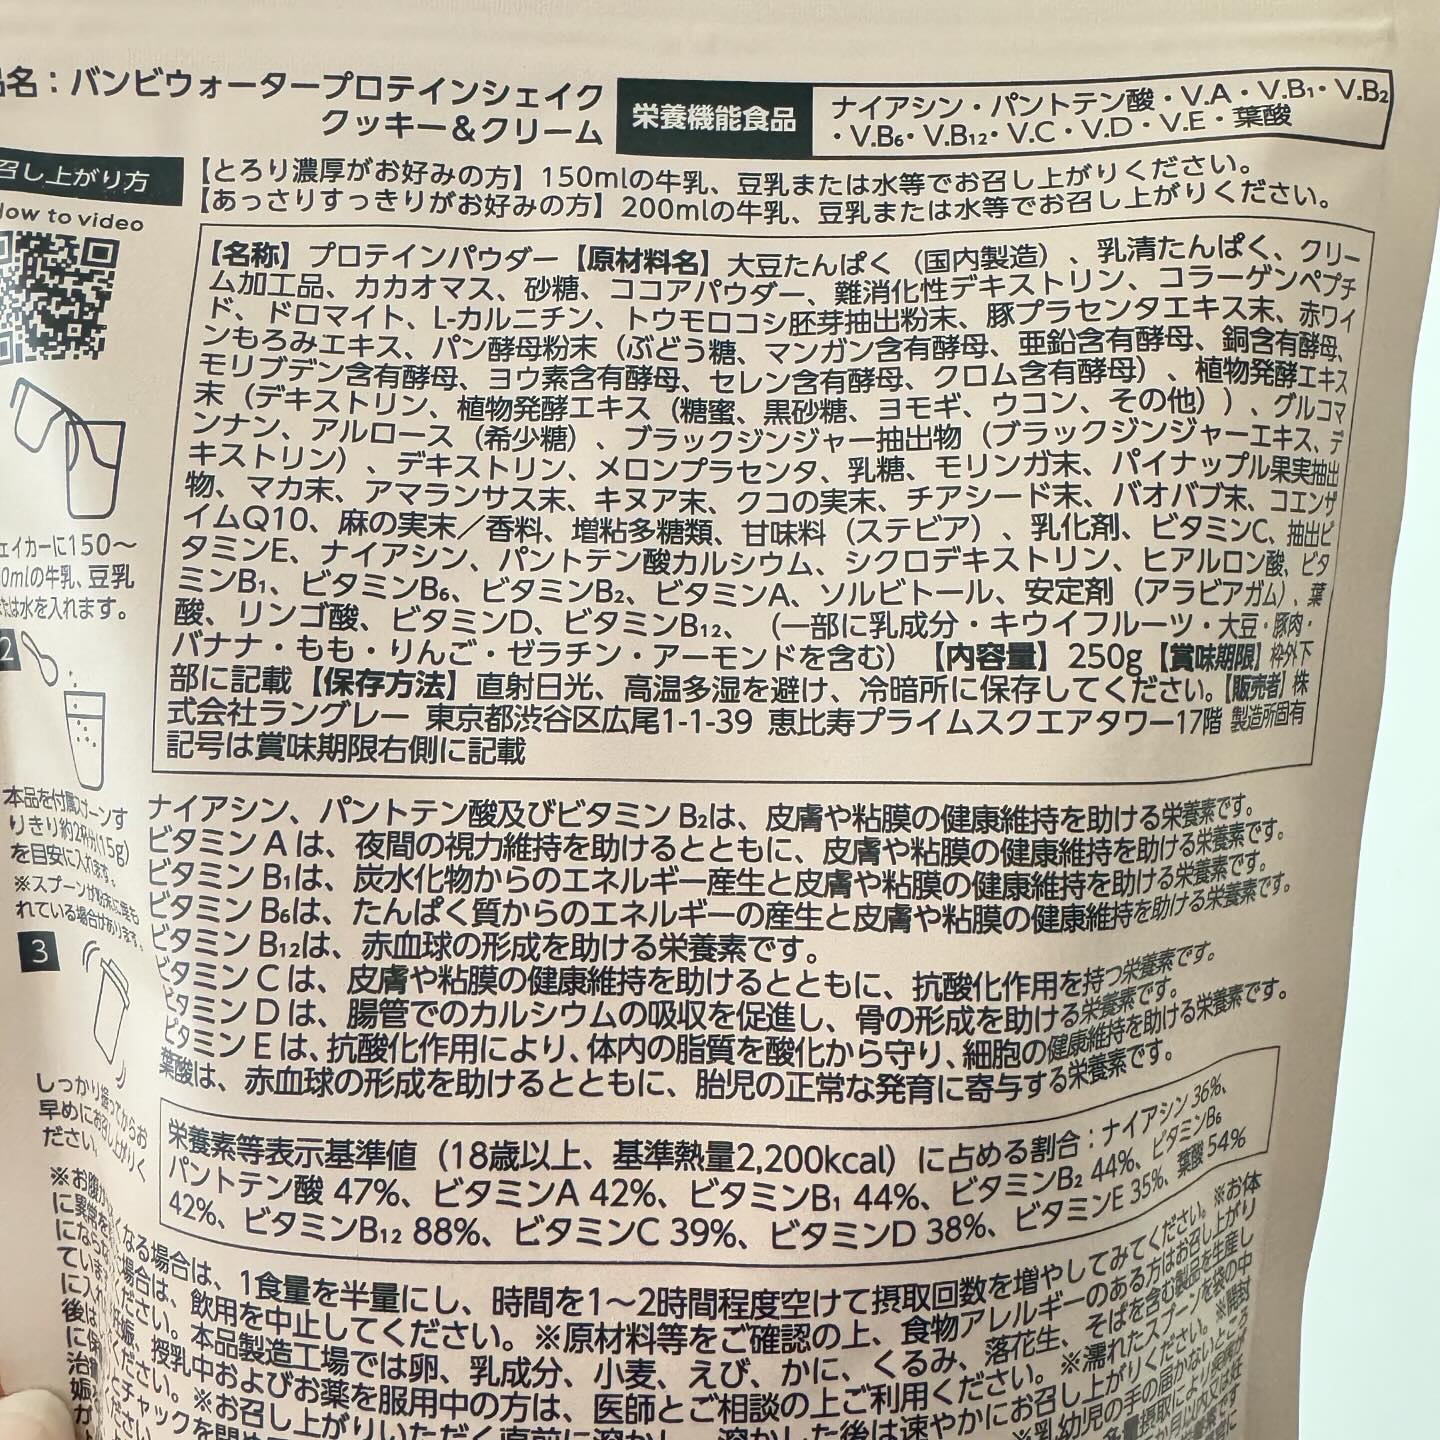 品名：バンビウォータープロテインシェイク
クッキー＆クリーム
栄養機能食品
ナイアシン・パントテン酸・V.A・V.B₁・V.B₂
・V.B₆・V.B₁₂・V.C・V.D・V.E・葉酸
召し上がり方
How to video
【とろり濃厚がお好みの方】150mlの牛乳、豆乳または水等でお召し上がりください。
【あっさりすっきりがお好みの方】200mlの牛乳、豆乳または水等でお召し上がりください。
【名称】プロテインパウダー【原材料名】大豆たんぱく（国内製造）、乳清たんぱく、クリー
ム加工品、カカオマス、砂糖、ココアパウダー、難消化性デキストリン、コラーゲンペプチ
ド、ドロマイト、L-カルニチン、トウモロコシ胚芽抽出粉末、豚プラセンタエキス末、赤ワイ
ンもろみエキス、パン酵母粉末（ぶどう糖、マンガン含有酵母、亜鉛含有酵母、銅含有酵母、
モリブデン含有酵母、ヨウ素含有酵母、セレン含有酵母、クロム含有酵母）、植物発酵エキス
末（デキストリン、植物発酵エキス（糖蜜、黒砂糖、ヨモギ、ウコン、その他））、グルコマ
ンナン、アルロース（希少糖）、ブラックジンジャー抽出物（ブラックジンジャーエキス、デ
キストリン）、デキストリン、メロンプラセンタ、乳糖、モリンガ末、パイナップル果実抽出
物、マカ末、アマランサス末、キヌア末、クコの実末、チアシード末、バオバブ末、コエンザ
イムQ10、麻の実末／香料、増粘多糖類、甘味料（ステビア）、乳化剤、ビタミンC、抽出ビ
タミンE、ナイアシン、パントテン酸カルシウム、シクロデキストリン、ヒアルロン酸、ビタ
ミンB₁、ビタミンB₆、ビタミンB₂、ビタミンA、ソルビトール、安定剤（アラビアガム）、葉
酸、リンゴ酸、ビタミンD、ビタミンB₁₂、（一部に乳成分・キウイフルーツ・大豆・豚肉・
バナナ・もも・りんご・ゼラチン・アーモンドを含む）【内容量】250g【賞味期限】枠外下
部に記載【保存方法】直射日光、高温多湿を避け、冷暗所に保存してください。【販売者】株
式会社ラングレー 東京都渋谷区広尾1-1-39 恵比寿プライムスクエアタワー17階 製造所固有
記号は賞味期限右側に記載
ェイカーに150〜
0mlの牛乳、豆乳
たは水を入れます。
2
本品を付属スプーンす
りきり約2杯分(15g)
を目安に入れます。
※スプーンが粉末に
れている場合があります。
3
しっかり振ってからお
早めにお召し上がりく
ださい。
ナイアシン、パントテン酸及びビタミン B₂は、皮膚や粘膜の健康維持を助ける栄養素です。
ビタミン A は、夜間の視力維持を助けるとともに、皮膚や粘膜の健康維持を助ける栄養素です。
ビタミン B₁は、炭水化物からのエネルギー産生と皮膚や粘膜の健康維持を助ける栄養素です。
ビタミン B₆は、たんぱく質からのエネルギーの産生と皮膚や粘膜の健康維持を助ける栄養素です。
ビタミン B₁₂は、赤血球の形成を助ける栄養素です。
ビタミン C は、皮膚や粘膜の健康維持を助けるとともに、抗酸化作用を持つ栄養素です。
ビタミン D は、腸管でのカルシウムの吸収を促進し、骨の形成を助ける栄養素です。
ビタミン E は、抗酸化作用により、体内の脂質を酸化から守り、細胞の健康維持を助ける栄養素です。
葉酸は、赤血球の形成を助けるとともに、胎児の正常な発育に寄与する栄養素です。
栄養素等表示基準値（18歳以上、基準熱量2,200kcal）に占める割合：ナイアシン 36%、
パントテン酸 47%、ビタミンA 42%、ビタミンB₁ 44%、ビタミンB₂ 44%、ビタミンB₆
42%、ビタミンB₁₂ 88%、ビタミンC 39%、ビタミンD 38%、ビタミンE 35%、葉酸 54%
なる場合は、1食量を半量にし、時間を1〜2時間程度空けて摂取回数を増やしてみてください。※お体
場合は、飲用を中止してください。※原材料等をご確認の上、食物アレルギーのある方はお召し上がり
ください。本品製造工場では卵、乳成分、小麦、えび、かに、くるみ、落花生、そばを含む製品を生産し
妊娠、授乳中およびお薬を服用中の方は、医師とご相談の上ご利用ください。※濡れたスプーンを袋の中
ください。※お召し上がりいただく直前に溶かし、溶かした後は速やかにお召し上がりください。※開封